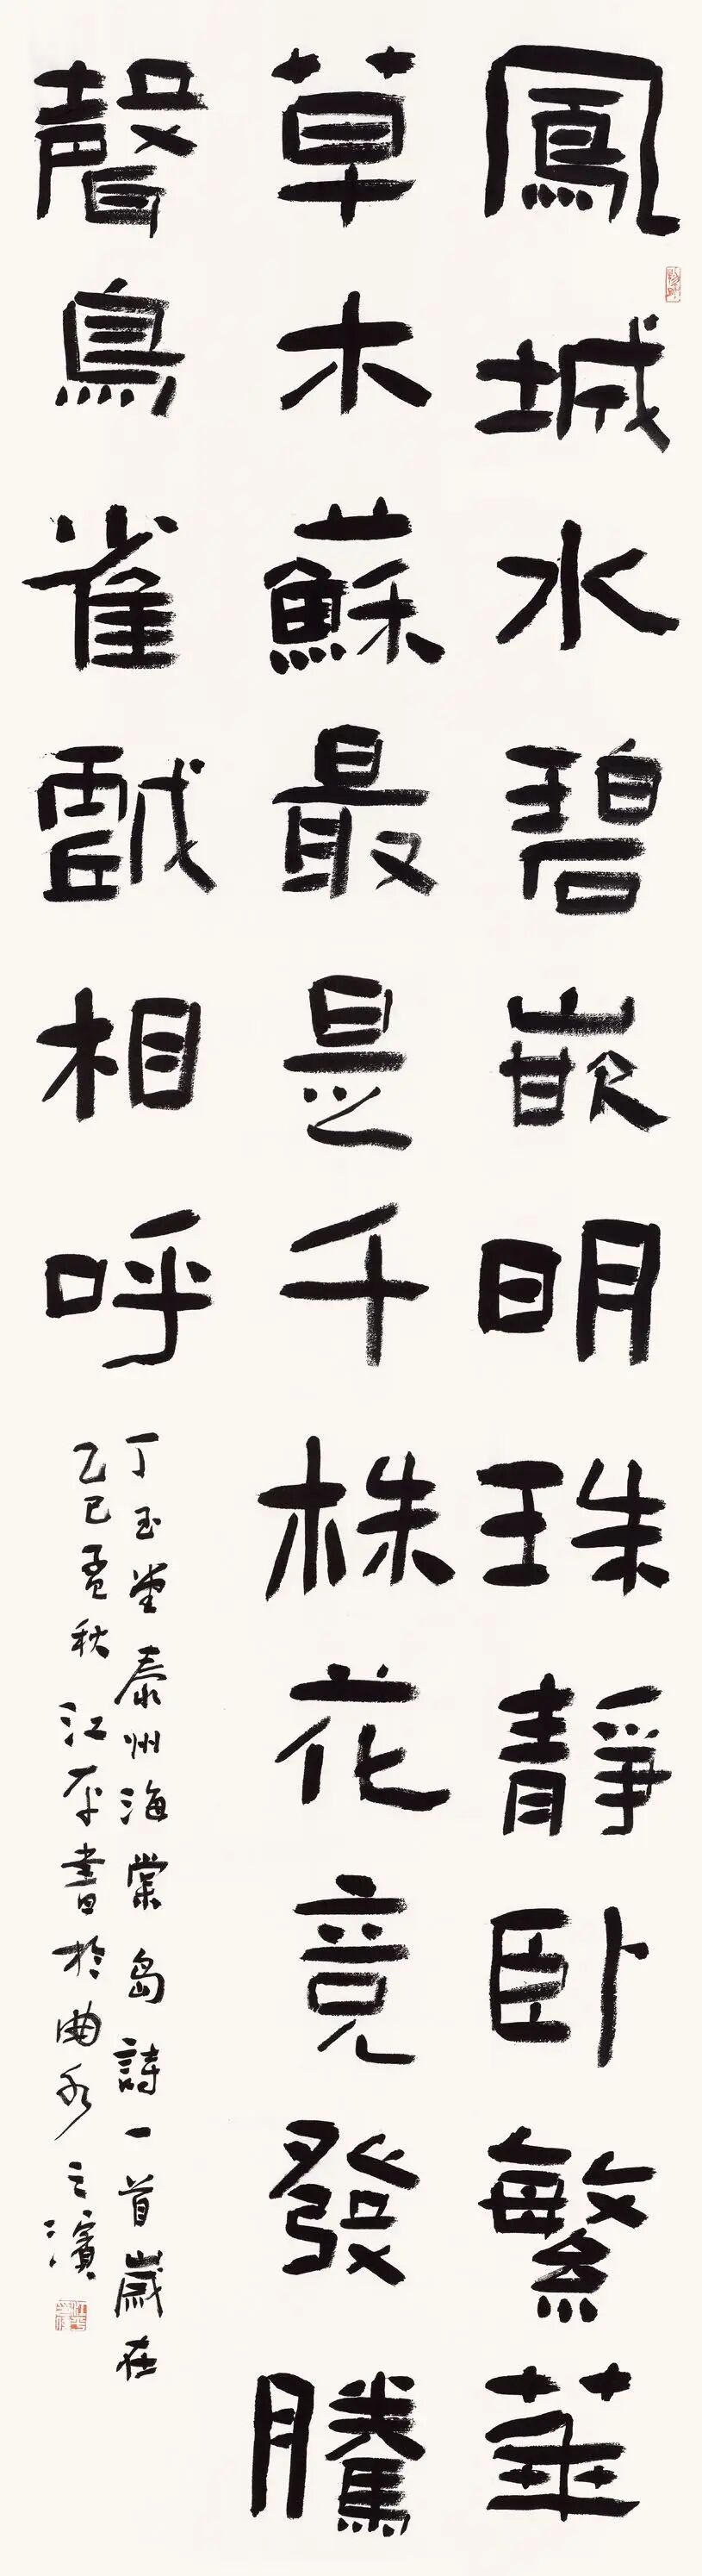 鳳城水碧嵌明珠靜臥繁華
草木蘇最是千株花竞發騰
聲鳥雀戲相呼
丁玉堂泰州海棠岛詩一首歲在
乙巳孟秋江平書於曲水之濱